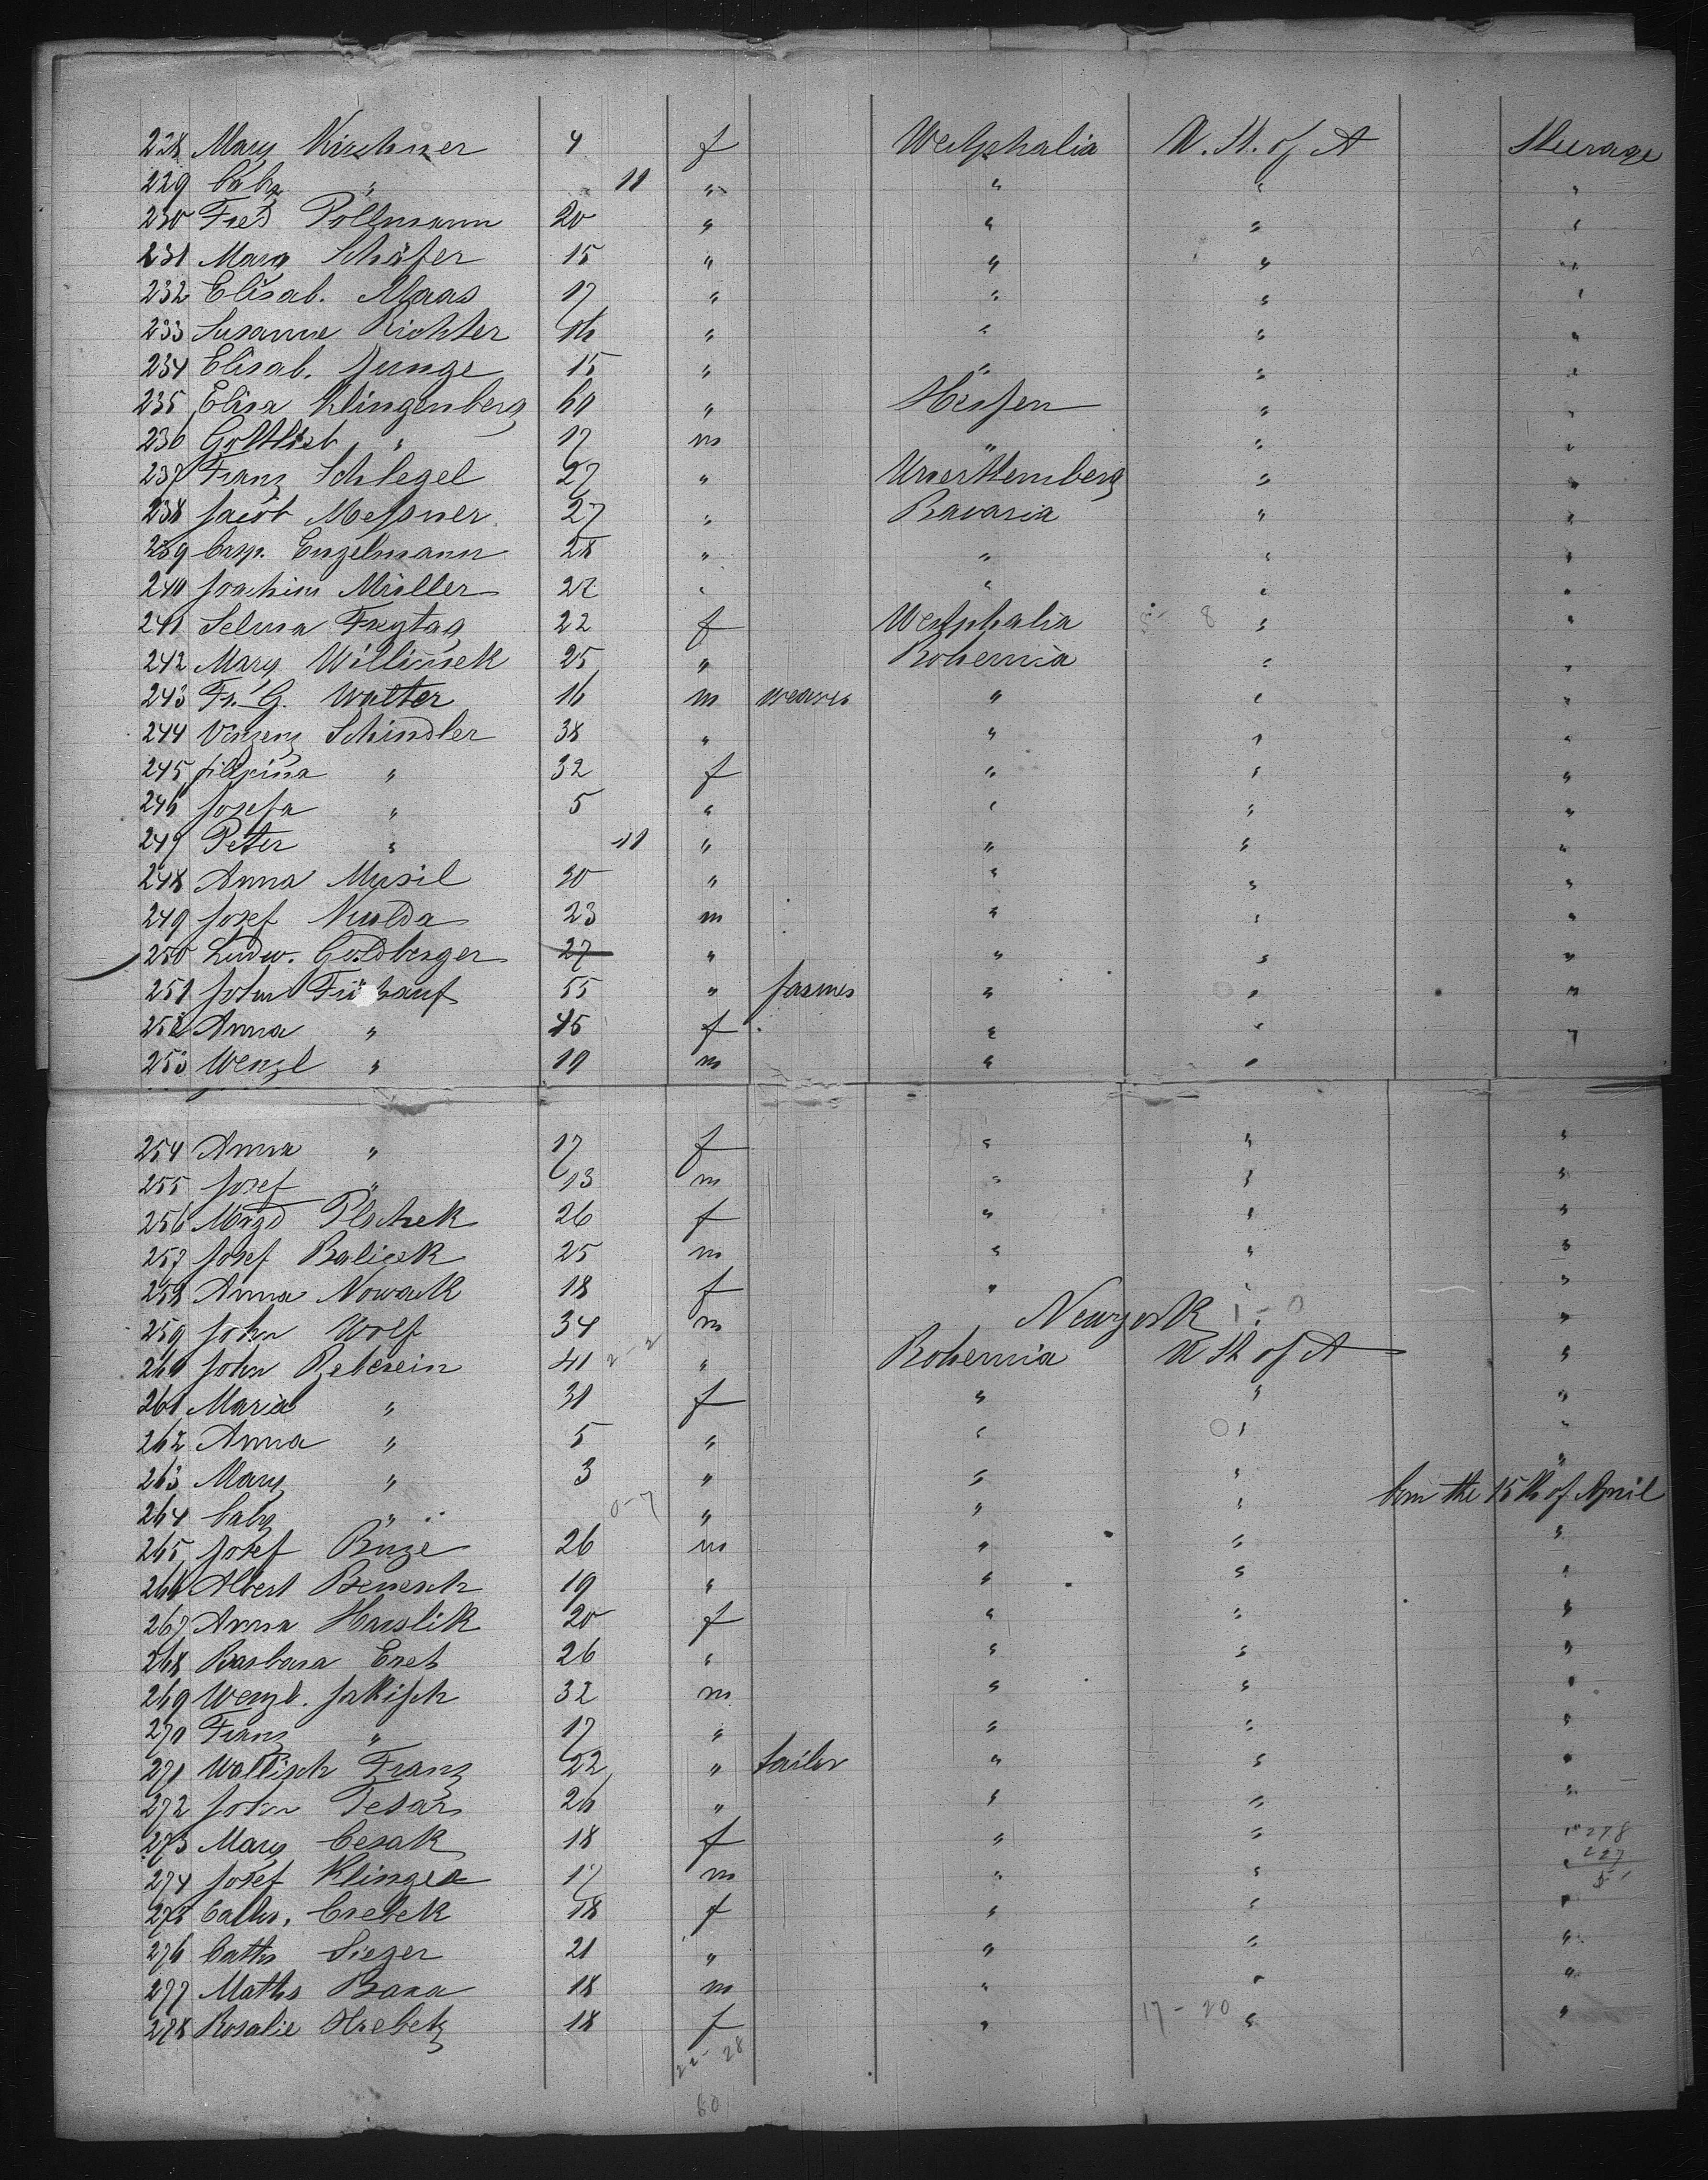 228 Mary Kirchner 4 f Westphalia U. St. of A Steerage
229 baby " 11 " " " "
230 Fred Pollmann 20 " " " "
231 Mary Schäfer 15 " " " "
232 Elisab. Maas 17 " " " "
233 Susanne Richter 16 " " " "
234 Elisab. Junge 15 " " " "
235 Elisa Klingenberg 60 " Hessen " "
236 Gottlieb " 17 m " " "
237 Franz Schlegel 27 " Wuerttemberg " "
238 Jacob Messner 27 " Bavaria " "
239 Casp. Engelmann 28 " " " "
240 Joachim Müller 27 " " " "
241 Selma Freytag 22 f Westphalia 8 " "
242 Mary Willimek 25 " Bohemia " "
243 Fr. G. Walter 16 m weaver " " "
244 Vinzenz Schindler 38 " " " "
245 " 32 f " " "
246 Josefa " 5 " " " "
247 Peter " 11 " " " "
248 Anna Musil 20 " " " "
249 Josef Nulda 23 m " " "
250 Ludw. Goldberger 27 " " " "
251 John 55 " farmer " " "
252 Anna " 45 f " " "
253 Wenzl " 19 m " " "
254 Anna " 17 f " " "
255 Josef " 13 m " " "
256 Magd Plschek 26 f " " "
257 Josef Balicek 25 m " " "
258 Anna Nowak 18 f " " "
259 John Wolf 34 m Newyork 1-0 "
260 John Beberein 41 " Bohemia U St of A "
261 Maria " 31 f " " "
262 Anna " 5 " " " "
263 Mary " 3 " " " "
264 baby " 0-7 " " " born the 15th of April
265 Josef Ruze 26 m " " "
266 Albert Benesch 19 " " " "
267 Anna Hauslik 20 f " " "
268 Barbara Eret 26 " " " "
269 Wenzl. Jakisch 32 m " " "
270 Franz " 17 " " " "
271 Wallisch Franz 22 " tailor " " "
272 John Tesar 26 " " " "
273 Mary Cesak 18 f " " " 278
227
274 Josef Klinger 17 m " " "
275 Cath. Crebek 18 f " " "
276 Cath Sieger 21 " " " "
277 Maths Bara 18 m " " "
278 Rosalie Hrebetz 18 f " 17-20 " "
22-28
60